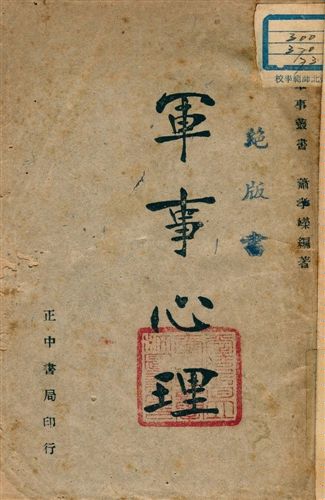 300
370
173
北師範學校
軍事叢書 蕭孝嶸編著
絕版書
軍事心理
正中書局印行